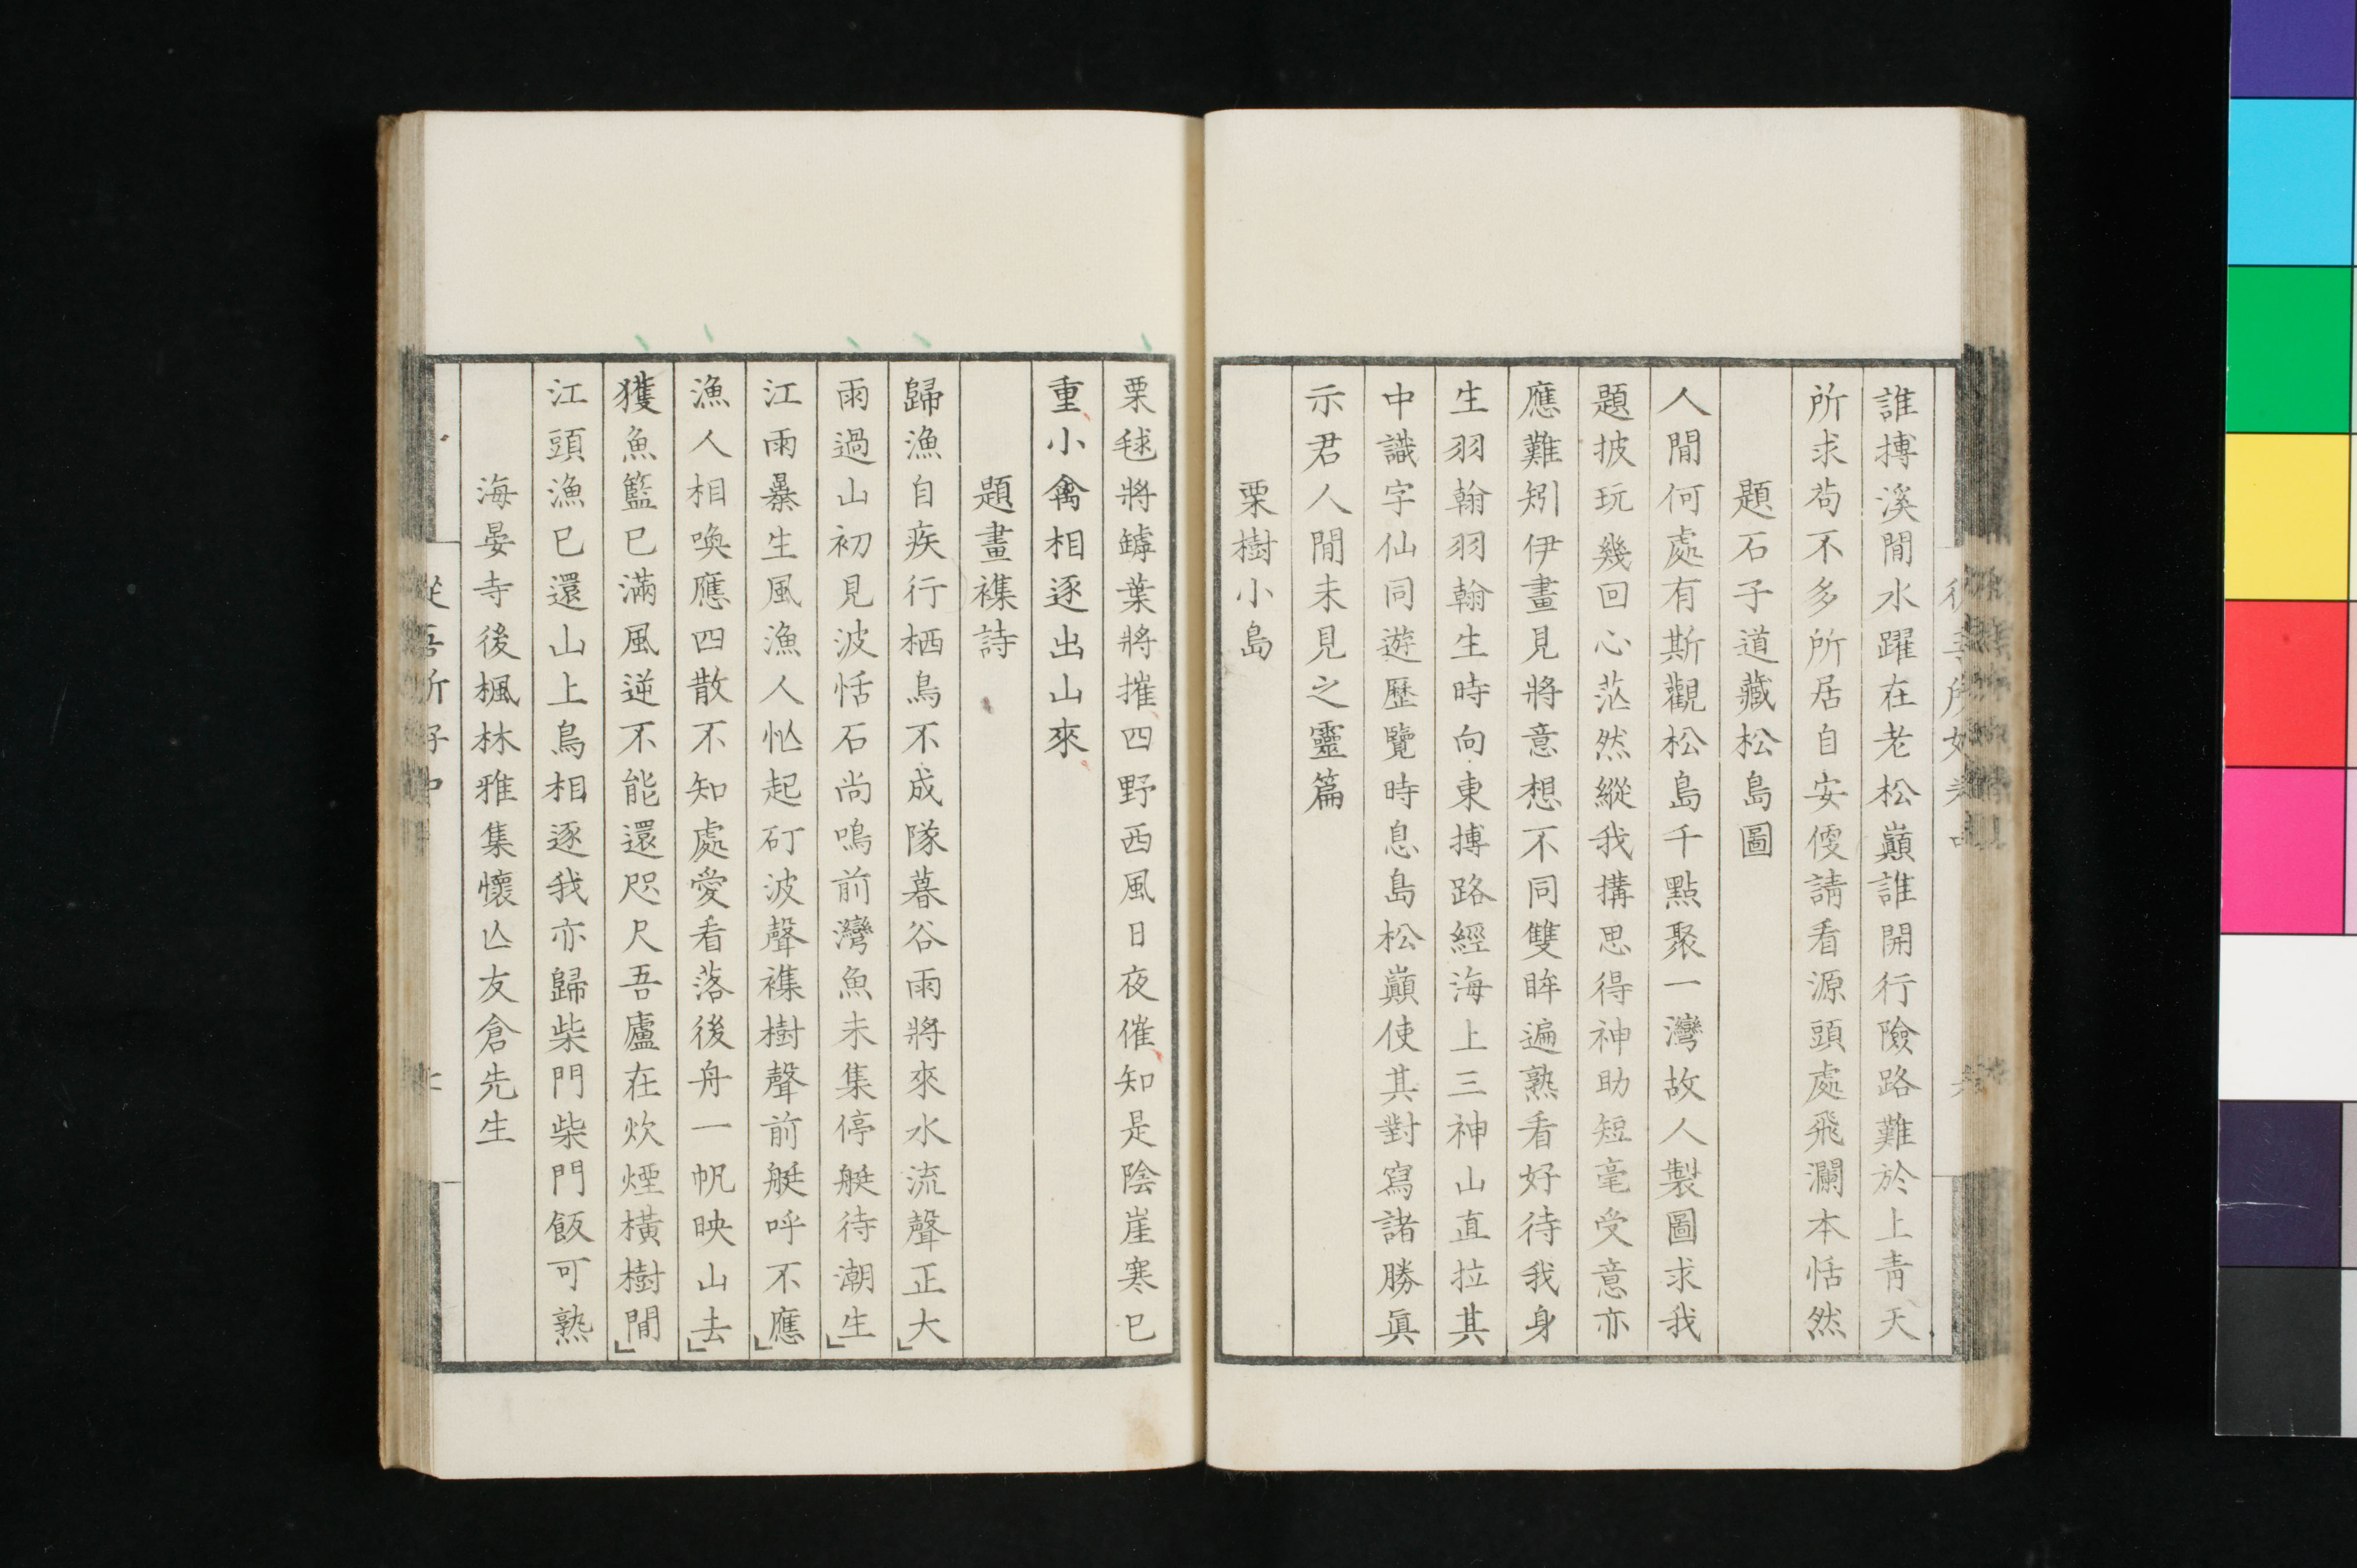 誰摶溪閒水躍在老松巓誰開行險路難於上靑天
所求茍不多所居自安便請看源頭處飛瀾本恬然
題石子道藏松島圖
人閒何處有斯觀松島千點聚一灣故人製圖求我
題披玩幾回心茫然縱我搆思得神助短毫受意亦
應難矧伊畫見將意想不同雙眸遍熟看好待我身
生羽翰羽翰生時向東摶路經海上三神山直拉其
中識字仙同遊歷覽時息島松巓使其對寫諸勝眞
示君人閒未見之靈篇
栗樹小島
栗毬將罅葉將摧四野西風日夜催知是陰崖寒已
重小禽相逐出山來
題畫襍詩
歸漁自疾行栖鳥不成隊暮谷雨將來水流聲正大
雨過山初見波恬石尚鳴前灣魚未集停艇待潮生
江雨暴生風漁人怭起矴波聲襍樹聲前艇呼不應
漁人相喚應四散不知處愛看落後舟一帆映山去
獲魚籃已滿風逆不能還咫尺吾廬在炊煙橫樹閒
江頭漁已還山上鳥相逐我亦歸柴門柴門飯可熟
海晏寺後楓林雅集懷亾友倉先生
從吾所好中